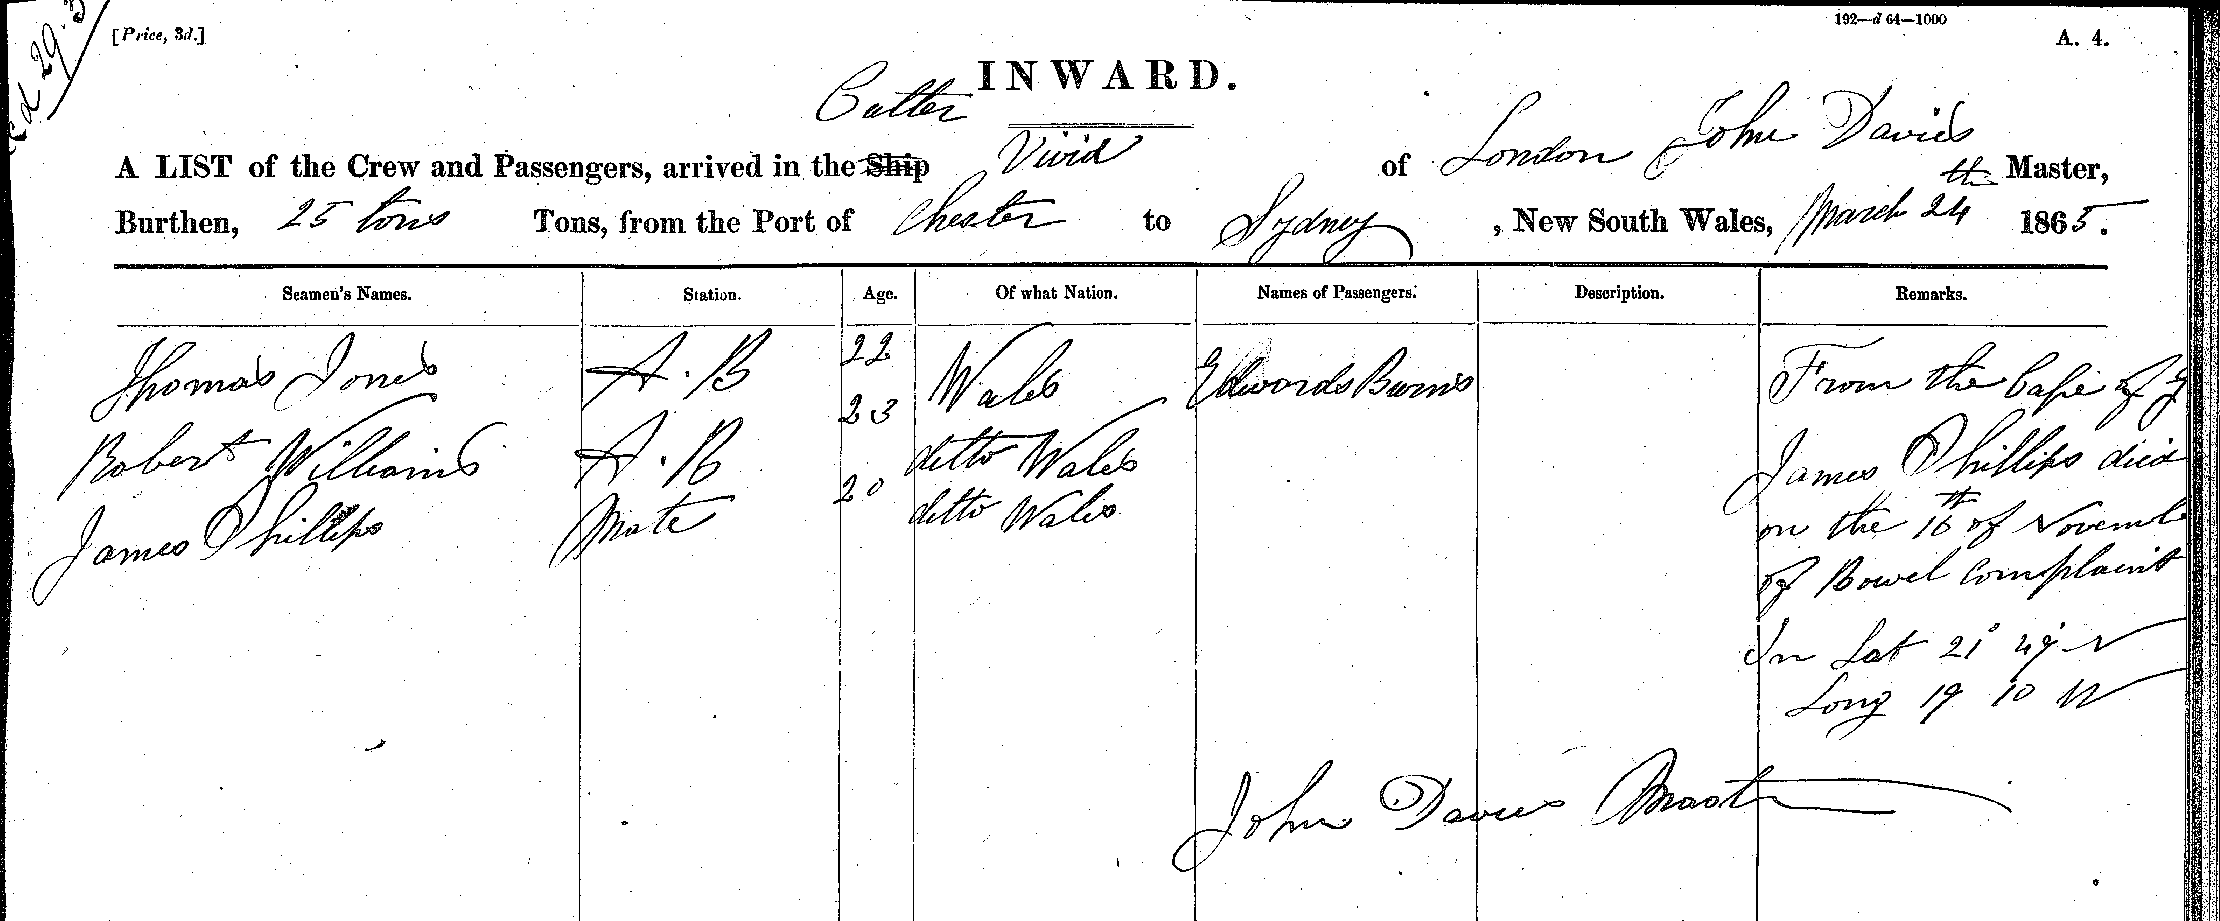 [Price, 3d.]
192—d 64—1000
A. 4.
29.3
INWARD.
Cutter
A LIST of the Crew and Passengers, arrived in the Ship Vivid of London John Davies Master,
Burthen, 25 tons Tons, from the Port of Chester to Sydney, New South Wales, March 24th 1865.
Seamen's Names. Station. Age. Of what Nation. Names of Passengers. Description. Remarks.
Thomas Jones A.B 22 Wales Edwards Burns From the Cape of
Robert Williams A.B 23 ditto Wales James Phillips died
James Phillips Mate 20 ditto Wales on the 16th of Novembe
of Bowel Complaint
In Lat 21° 49 N
Long 19 10 W
John Davies Master